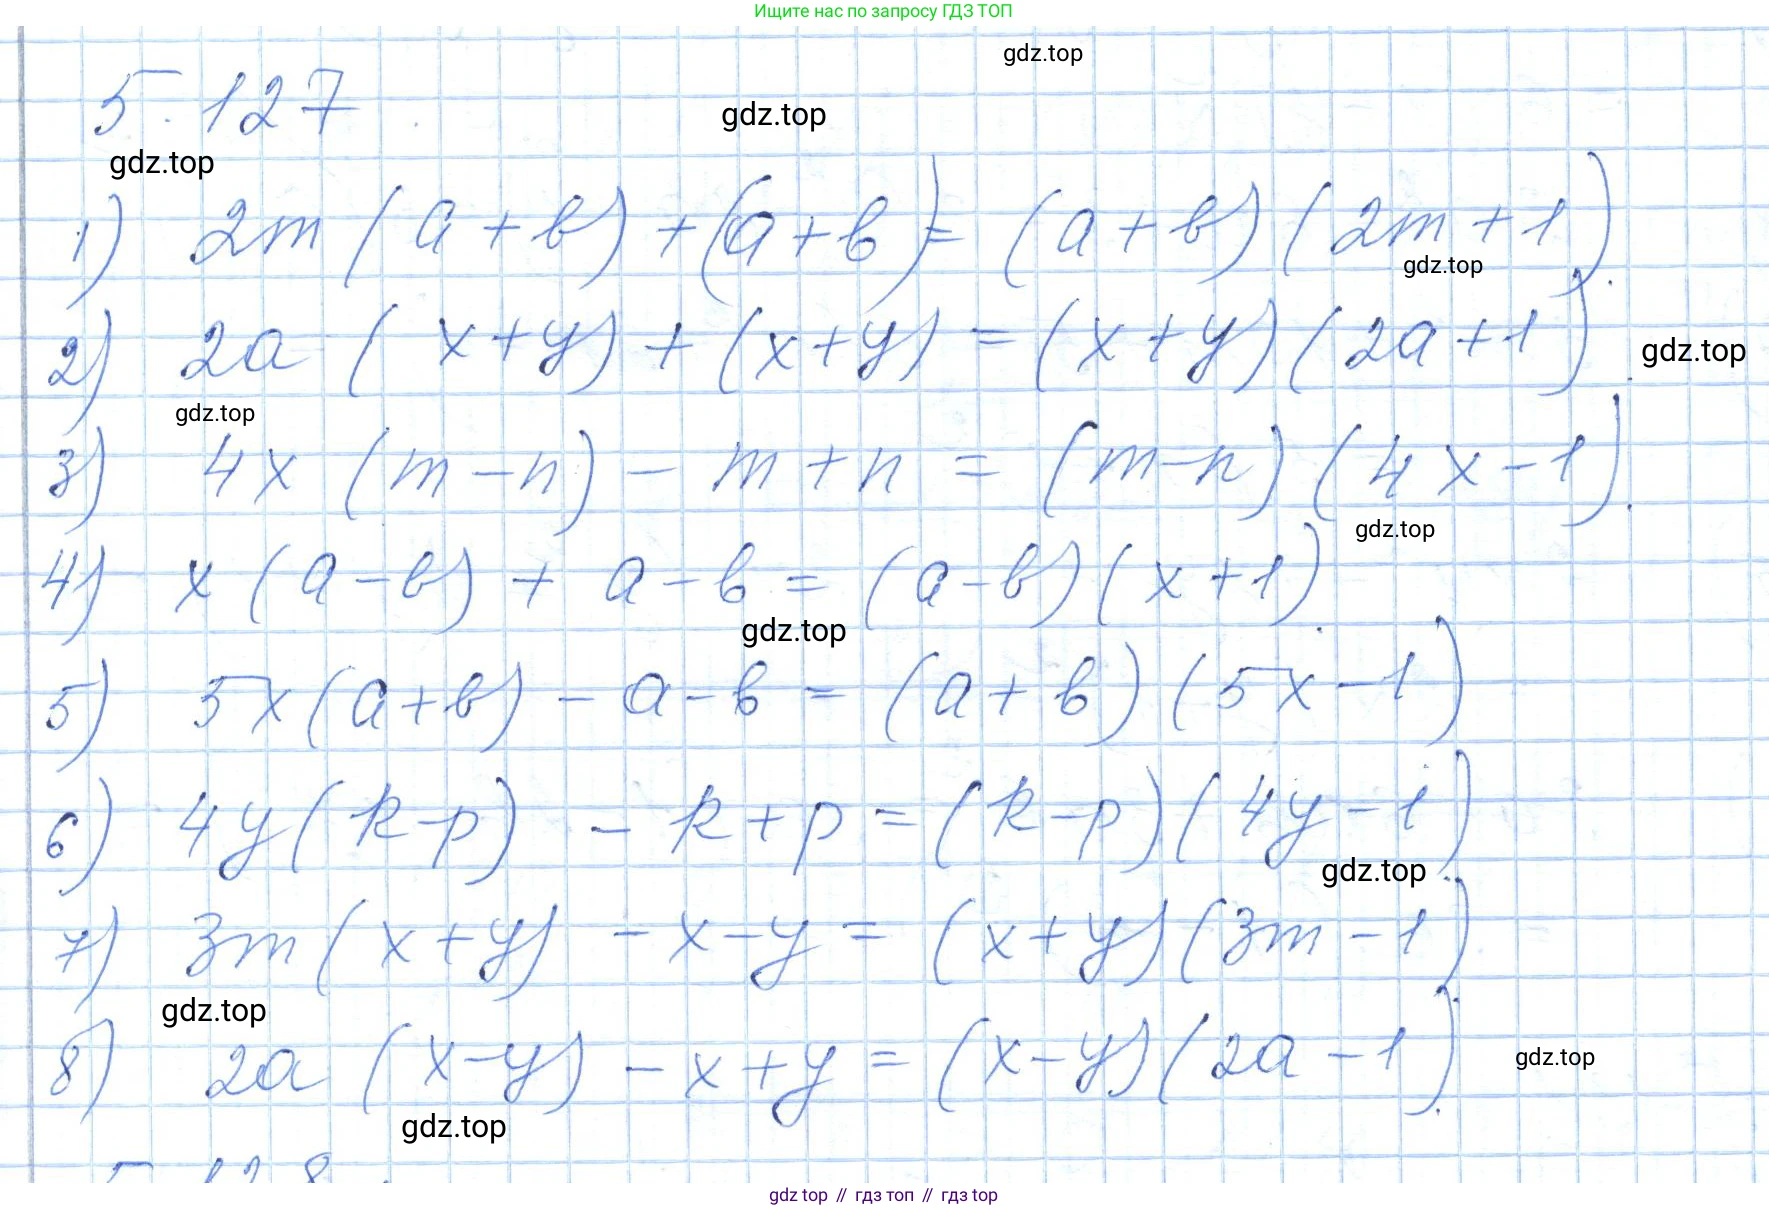 Ищите нас по запросу ГДЗ ТОП
gdz.top
5.127
gdz.top
gdz.top
1) 2m (a+b) + (a+b) = (a+b) (2m+1).
gdz.top
2) 2a (x+y) + (x+y) = (x+y) (2a+1).
gdz.top
gdz.top
3) 4x (m-n) - m+n = (m-n) (4x-1).
gdz.top
4) x (a-b) + a-b = (a-b) (x+1).
gdz.top
5) 5x (a+b) - a-b = (a+b) (5x-1)
6) 4y (k-p) - k+p = (k-p) (4y-1).
gdz.top
7) 3m (x+y) - x-y = (x+y) (3m-1).
gdz.top
8) 2a (x-y) - x+y = (x-y) (2a-1).
gdz.top
gdz.top
5.128
gdz top // гдз топ // гдз top